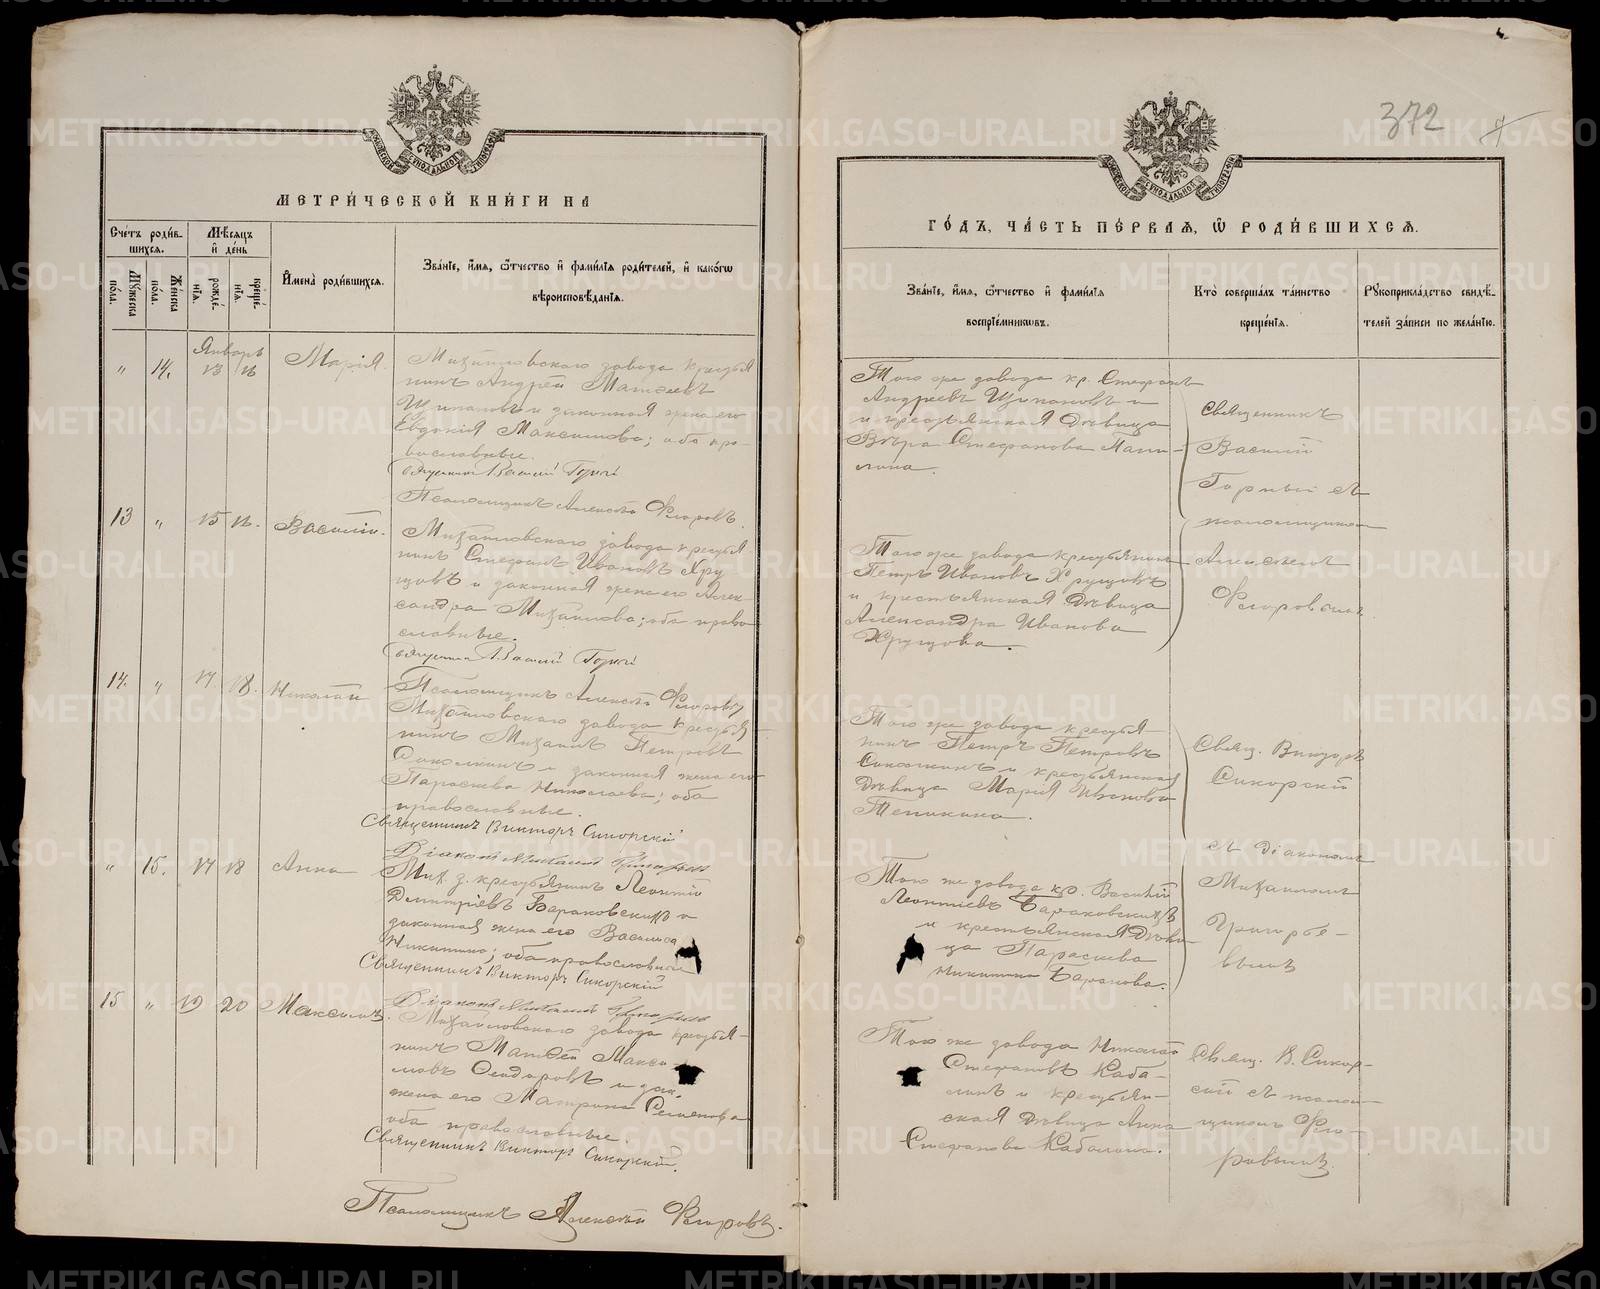 МЕТРИ́ЧЕСКОЙ КНИ́ГИ НА
Сче́тъ роди́в-
шихся.
Мѣ́сяцъ
и де́нь
Му́жеска
по́ла.
Же́нска
по́ла.
рожде́-
нїя.
креще́-
нїя.
Имена̀ роди́вшихся.
Зва́нїе, и́мя, ѻ҆́тчество и фами́лїя роди́телей, и како́гѡ
вѣроисповѣ́данїя.
Январь
" 14. 13 16 Марія.
Михайловскаго завода крестья
нинъ Андрей Матѳеевъ
Щипановъ и законная жена его
Евдокія Максимова; оба пра-
вославные.
Священникъ Василій Горный
Псаломщикъ Алексѣй Флоровъ.
13 " 15 16. Василій.
Михайловскаго завода крестья
нинъ Стефанъ Ивановъ Хру
щовъ и законная жена его Алек-
сандра Михаилова; оба право
славные.
Священникъ Василій Горный
Псаломщикъ Алексѣй Флоровъ
14. " 17. 18. Николай
Михайловскаго завода крестья-
нинъ Михаилъ Петровъ
и законная жена его
Параскева Николаева; оба
православные.
Священникъ Викторъ Сикорскій
Діаконъ Михаилъ Григорьевъ
" 15. 17 18 Анна
Мих. з. крестьянинъ Леонтій
Дмитріевъ Бараковскихъ и
законная жена его Васса
Никитина; оба православные
Священникъ Викторъ Сикорскій
Діаконъ Михаилъ Григорьевъ
15 " 19 20 Максимъ.
Михайловскаго завода крестья-
нинъ Матѳей Макси-
мовъ Ѳеодоровъ и зак.
жена его Матрона Семенова
оба православные.
Священникъ Викторъ Сикорскій.
Псаломщикъ Алексѣй Флоровъ.
372
ГО́ДЪ, ЧА́СТЬ ПЕ́РВАЯ, Ѽ РОДИ́ВШИХСЯ.
Зва́нїе, и́мя, ѻ҆́тчество и фами́лїя
воспрїе́мникѡвъ.
Кто̀ соверша́лъ та́инство
креще́нїя.
Рукоприкла́дство свидѣ́-
телей за́писи по жела́нїю.
Того же завода кр. Стефанъ
Андреевъ Щипановъ и
и крестьянская дѣвица
Вѣра Стефанова
Священникъ
Василій
Горный съ
псаломщикомъ
Алексѣемъ
Флоровымъ
Того же завода крестьянинъ
Петръ Ивановъ Хрущовъ
и крестьянская дѣвица
Александра Иванова
Хрущова.
Того же завода крестья-
нинъ Петръ Петровъ
и крестьянская
дѣвица Марія Иванова
Свящ. Викторъ
Сикорскій
съ діакономъ
Михаиломъ
Григорье-
вымъ
Того же завода кр. Василій
Леонтіевъ Бараковскихъ
и крестьянская дѣви-
ца Параскева
Никитина Баранова.
Того же завода Николай
Стефановъ Каба-
линъ и крестьян-
ская дѣвица Анна
Стефанова Кабалина.
Свящ. В. Сикор-
скій съ псалом-
щикомъ Фло-
ровымъ.
METRIKI.GASO-URAL.RU